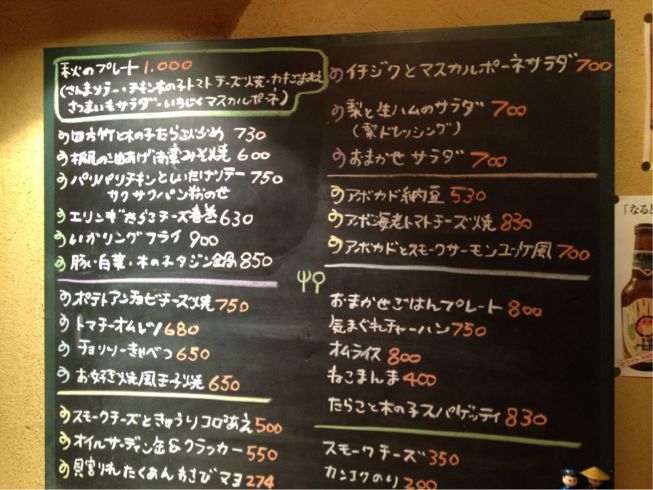 秋のプレート 1.000
(さんまソテー・チキン木の子トマトチーズ焼・カキごまあえ
さつまいもサラダ・いちじくマスカルポーネ)
四方竹と木の子たらこいため 730
栃尾の油あげ南蛮みそ焼 600
パリパリチキンとしいたけソテー 750
サクサクパン粉のせ
エリンギたらこチーズ春巻 630
いかリングフライ 900
豚・白菜・木の子タジン鍋 850
ポテトアンチョビチーズ焼 750
トマチーオムレツ 680
チョリソーキャベツ 650
お好き焼風玉子焼 650
スモークチーズときゅうりコロコロあえ 500
オイルサーディン缶&クラッカー 550
貝割れたくあんわさびマヨ 274
イチジクとマスカルポーネサラダ 700
梨と生ハムのサラダ 700
(梨ドレッシング)
おまかせサラダ 700
アボカド納豆 530
アボ海老トマトチーズ焼 830
アボカドとスモークサーモンユッケ風 700
おまかせごはんプレート 800
気まぐれチャーハン 750
オムライス 800
ねこまんま 400
たらこと木の子スパゲッティ 830
スモークチーズ 350
カンコクのり 200
「なると